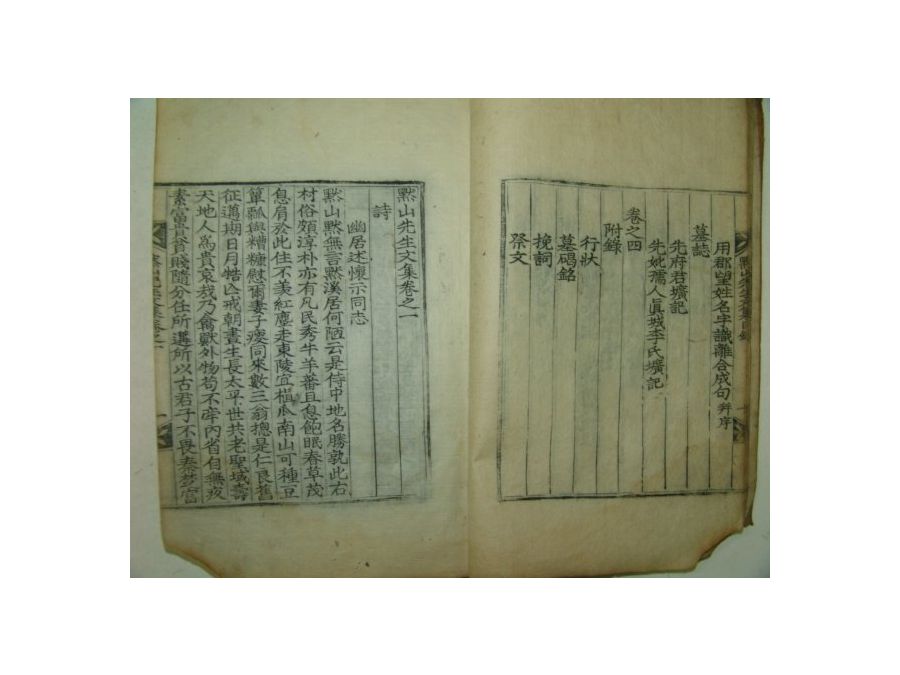 用郡望姓名字識離合成句 幷序
墓誌
先府君壙記
先妣孺人眞城李氏壙記
卷之四
附錄
行狀
墓碣銘
挽詞
祭文
默山先生文集卷之一
詩
幽居述懷示同志
默山默無言默溪居何陋云是侍中地名勝孰此右
材俗頗淳朴亦有凡民秀牛羊蕃且息飽眠春草茂
息肩於此住不羡紅塵走東陵宜植瓜南山可種豆
簞瓢與糟糠慰爾妻子瘦同來數三翁摠是仁良舊
征邁期日月牿亡戒朝晝生長太平世共老聖域壽
天地人爲貴哀哉乃禽獸外物苟不牽內省自無疚
素富貴貧賤隨分任所遘所以古君子不畏